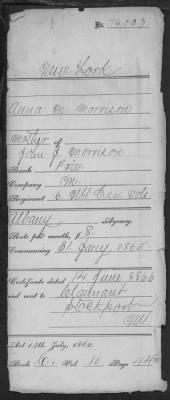 No. 76.503
New York
Anna M. Morrison
Mother of
John J. Morrison
Rank Priv
Company M.
Regiment 6. NY Cav Vols
Albany Agency.
Rate per month, $8.
Commencing 31. Jany, 1865
Certificate dated 14 June 1866
and sent to Claimant
Stockport
NY
Act 14th July, 1862.
Book C. Vol. 10 Page 44